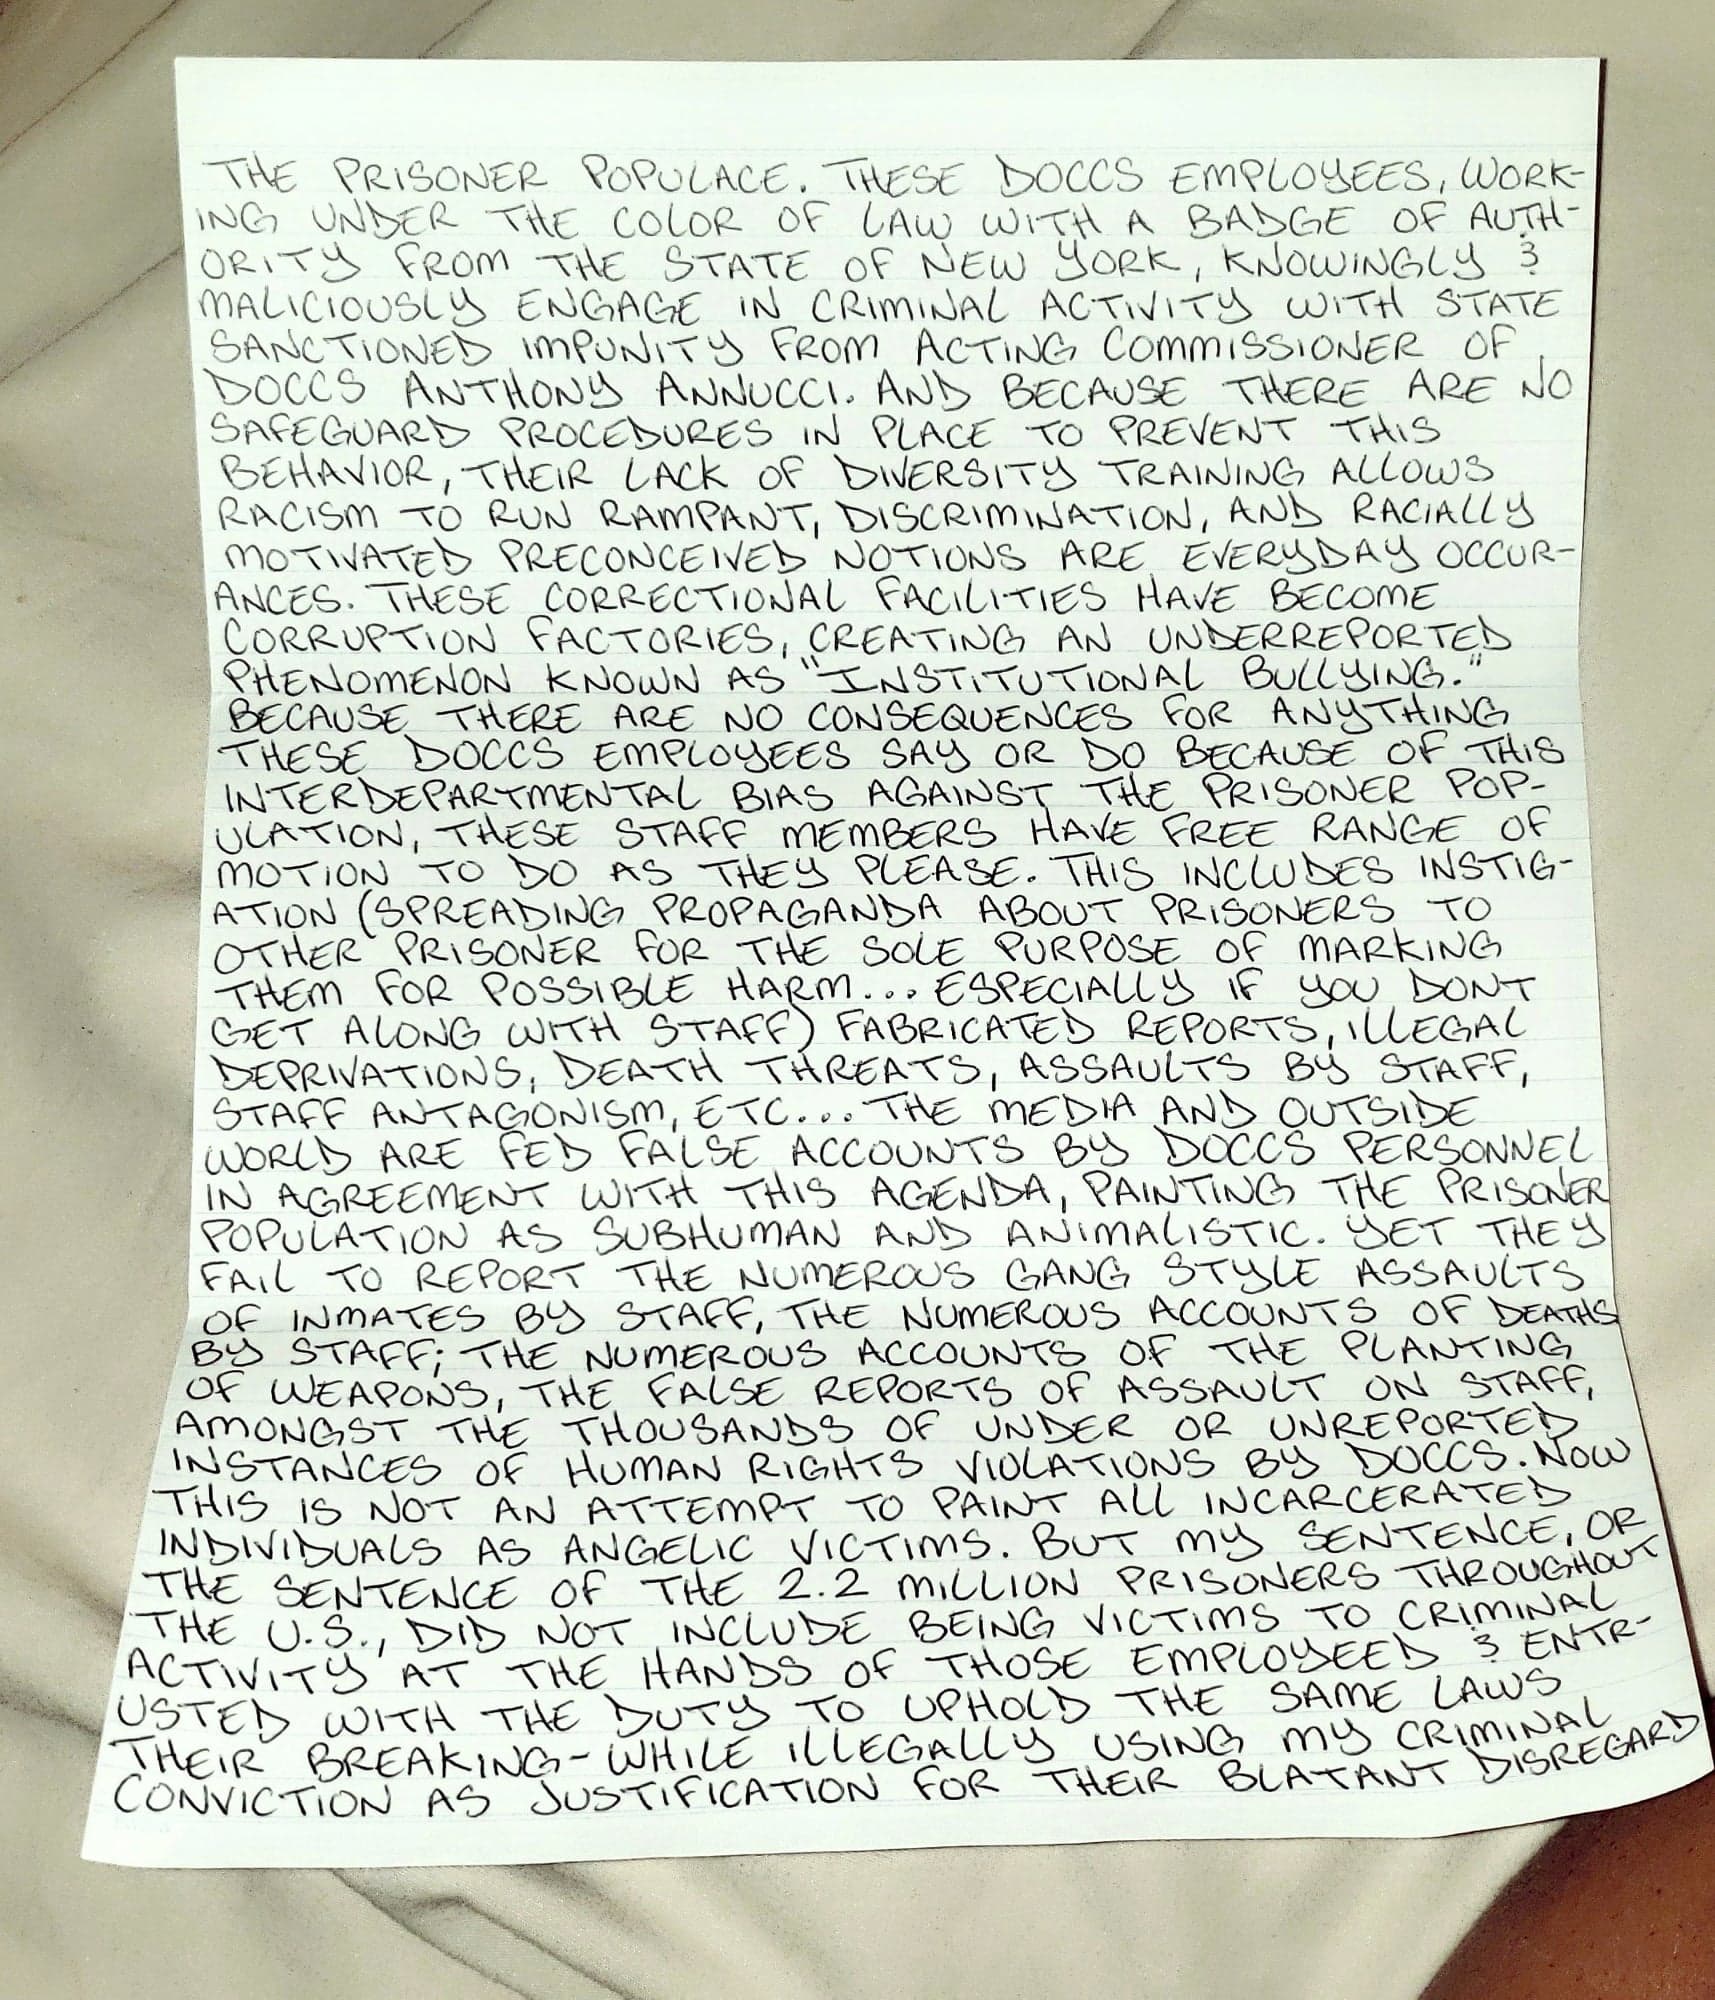 THE PRISONER POPULACE. THESE DOCCS EMPLOYEES, WORK-
ING UNDER THE COLOR OF LAW WITH A BADGE OF AUTH-
ORITY FROM THE STATE OF NEW YORK, KNOWINGLY &
MALICIOUSLY ENGAGE IN CRIMINAL ACTIVITY WITH STATE
SANCTIONED IMPUNITY FROM ACTING COMMISSIONER OF
DOCCS ANTHONY ANNUCCI. AND BECAUSE THERE ARE NO
SAFEGUARD PROCEDURES IN PLACE TO PREVENT THIS
BEHAVIOR, THEIR LACK OF DIVERSITY TRAINING ALLOWS
RACISM TO RUN RAMPANT, DISCRIMINATION, AND RACIALLY
MOTIVATED PRECONCEIVED NOTIONS ARE EVERYDAY OCCUR-
ANCES. THESE CORRECTIONAL FACILITIES HAVE BECOME
CORRUPTION FACTORIES, CREATING AN UNDERREPORTED
PHENOMENON KNOWN AS "INSTITUTIONAL BULLYING."
BECAUSE THERE ARE NO CONSEQUENCES FOR ANYTHING
THESE DOCCS EMPLOYEES SAY OR DO BECAUSE OF THIS
INTERDEPARTMENTAL BIAS AGAINST THE PRISONER POP-
ULATION, THESE STAFF MEMBERS HAVE FREE RANGE OF
MOTION TO DO AS THEY PLEASE. THIS INCLUDES INSTIG-
ATION (SPREADING PROPAGANDA ABOUT PRISONERS TO
OTHER PRISONER FOR THE SOLE PURPOSE OF MARKING
THEM FOR POSSIBLE HARM... ESPECIALLY IF YOU DONT
GET ALONG WITH STAFF) FABRICATED REPORTS, ILLEGAL
DEPRIVATIONS, DEATH THREATS, ASSAULTS BY STAFF,
STAFF ANTAGONISM, ETC... THE MEDIA AND OUTSIDE
WORLD ARE FED FALSE ACCOUNTS BY DOCCS PERSONNEL
IN AGREEMENT WITH THIS AGENDA, PAINTING THE PRISONER
POPULATION AS SUBHUMAN AND ANIMALISTIC. YET THEY
FAIL TO REPORT THE NUMEROUS GANG STYLE ASSAULTS
OF INMATES BY STAFF, THE NUMEROUS ACCOUNTS OF DEATHS
BY STAFF; THE NUMEROUS ACCOUNTS OF THE PLANTING
OF WEAPONS, THE FALSE REPORTS OF ASSAULT ON STAFF,
AMONGST THE THOUSANDS OF UNDER OR UNREPORTED
INSTANCES OF HUMAN RIGHTS VIOLATIONS BY DOCCS. NOW
THIS IS NOT AN ATTEMPT TO PAINT ALL INCARCERATED
INDIVIDUALS AS ANGELIC VICTIMS. BUT MY SENTENCE, OR
THE SENTENCE OF THE 2.2 MILLION PRISONERS THROUGHOUT
THE U.S., DID NOT INCLUDE BEING VICTIMS TO CRIMINAL
ACTIVITY AT THE HANDS OF THOSE EMPLOYEED & ENTR-
USTED WITH THE DUTY TO UPHOLD THE SAME LAWS
THEIR BREAKING-WHILE ILLEGALLY USING MY CRIMINAL
CONVICTION AS JUSTIFICATION FOR THEIR BLATANT DISREGARD